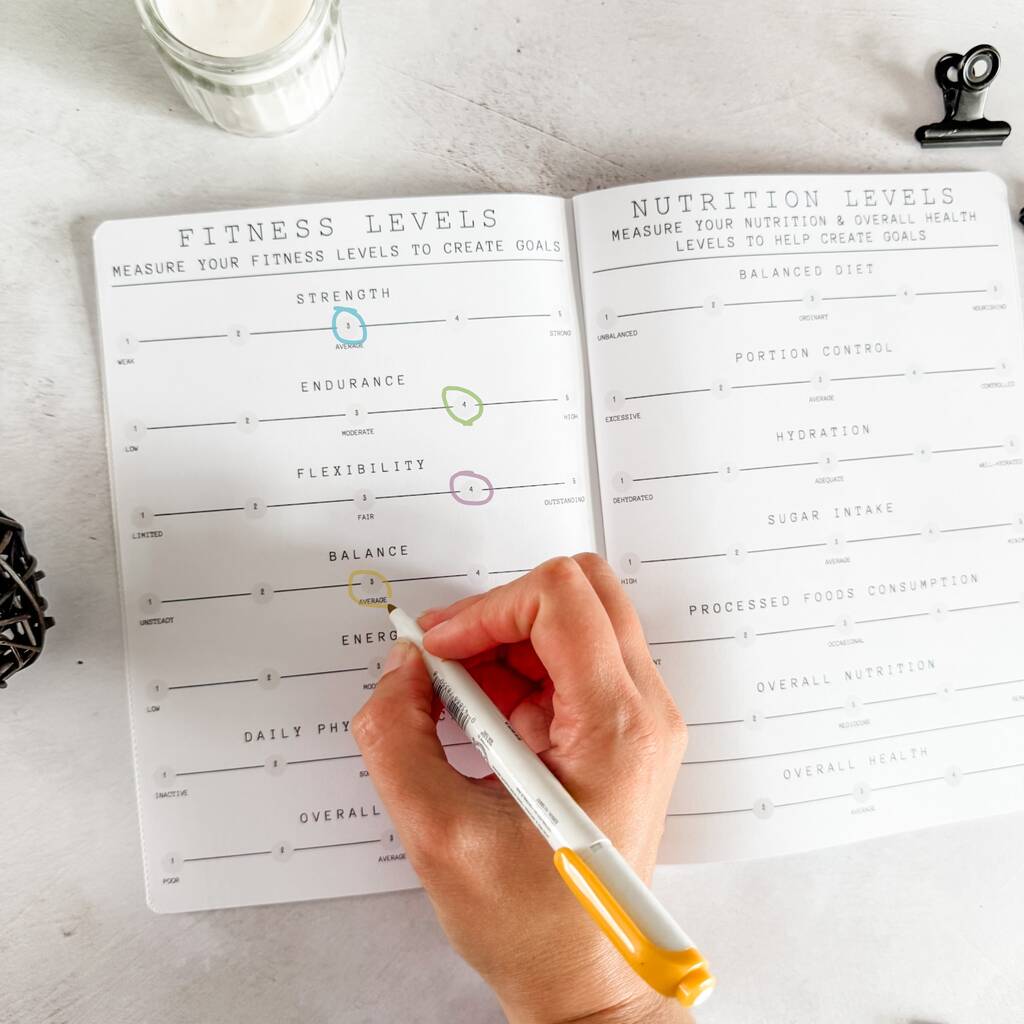 FITNESS LEVELS
MEASURE YOUR FITNESS LEVELS TO CREATE GOALS
STRENGTH
1 2 3 4 5
WEAK AVERAGE STRONG
ENDURANCE
1 2 3 4 5
LOW MODERATE HIGH
FLEXIBILITY
1 2 3 4 5
LIMITED FAIR OUTSTANDING
BALANCE
1 2 3 4
UNSTEADY AVERAGE
ENERG
1 2 3
LOW MOD
DAILY PHY
1 2
INACTIVE
OVERALL
1 2 3
POOR AVERAGE
NUTRITION LEVELS
MEASURE YOUR NUTRITION & OVERALL HEALTH
LEVELS TO HELP CREATE GOALS
BALANCED DIET
1 2 3 4 5
UNBALANCED ORDINARY NOURISHING
PORTION CONTROL
1 2 3 4 5
EXCESSIVE AVERAGE CONTROLLED
HYDRATION
1 2 3 4 5
DEHYDRATED ADEQUATE WELL-HYDRATED
SUGAR INTAKE
1 2 3 4 5
HIGH AVERAGE MINIM
PROCESSED FOODS CONSUMPTION
2 3 4
OCCASIONAL
OVERALL NUTRITION
2 3 4
MEDIOCRE
OVERALL HEALTH
2 3 4
AVERAGE